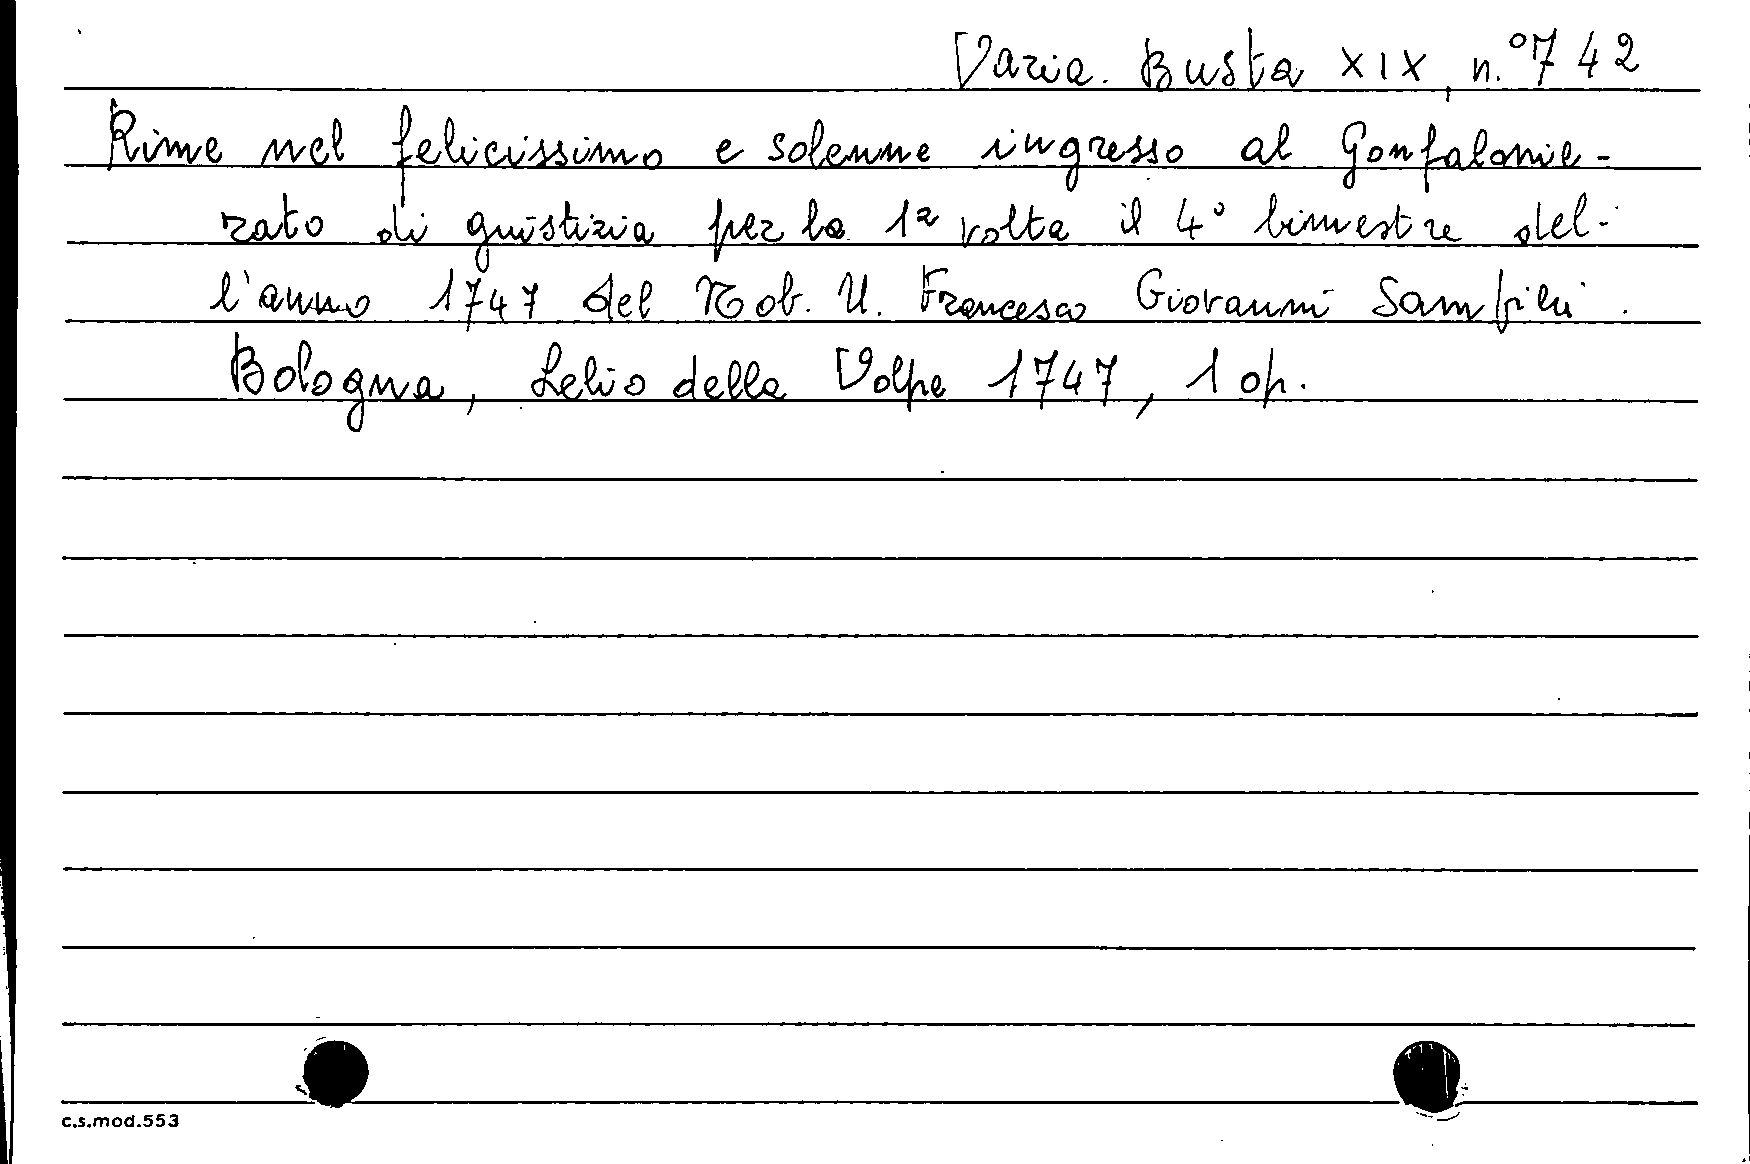 Varia. Busta XIX, n.° 742
Rime nel felicissimo e solenne ingresso al Gonfalonie-
rato di giustizia per la 1ª volta il 4° bimestre del-
l'anno 1747 del Nob. U. Francesco Giovanni Sampieri.
Bologna, Lelio della Volpe 1747, 1 op.
c.s.mod.553